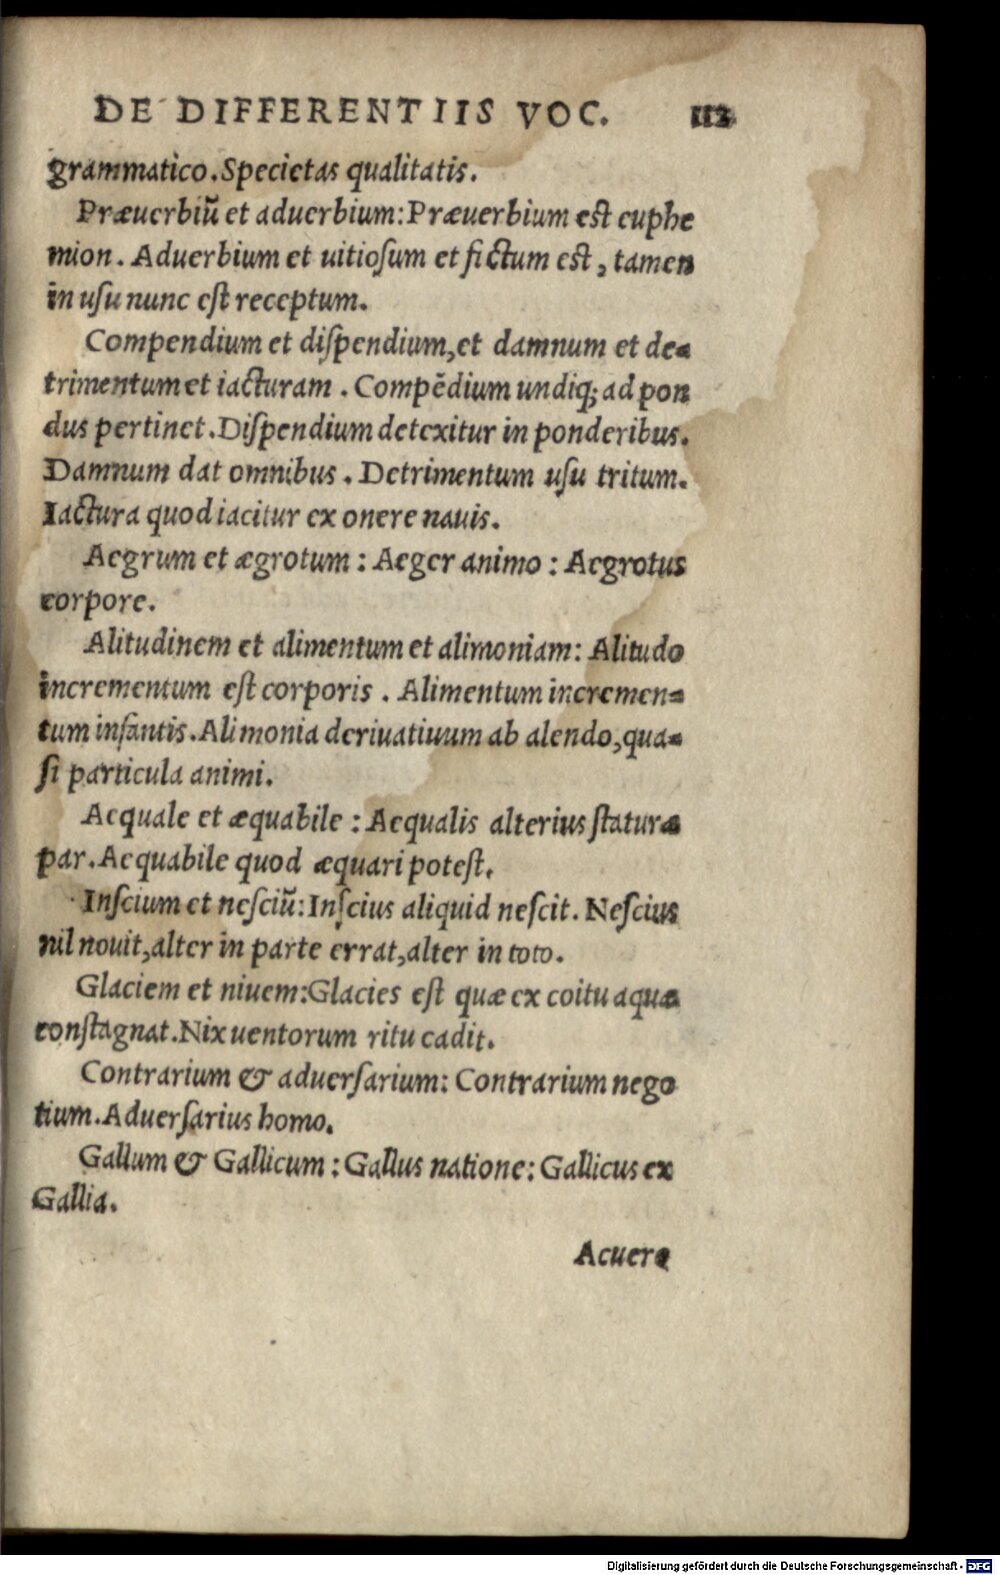 DE DIFFERENTIIS VOC. 112
grammatico. Specietas qualitatis.
Præuerbiū et aduerbium: Præuerbium est euphe
mion. Aduerbium et uitiosum et fictum est, tamen
in usu nunc est receptum.
Compendium et dispendium, et damnum et de=
trimentum et iacturam. Compēdium undiq; ad pon
dus pertinet. Dispendium detexitur in ponderibus.
Damnum dat omnibus. Detrimentum usu tritum.
Iactura quod iacitur ex onere nauis.
Aegrum et ægrotum: Aeger animo: Aegrotus
corpore.
Alitudinem et alimentum et alimoniam: Alitudo
incrementum est corporis. Alimentum incremen=
tum infantis. Alimonia deriuatiuum ab alendo, qua=
si particula animi.
Aequale et æquabile: Aequalis alterius staturæ
par. Aequabile quod æquari potest.
Inscium et nesciū: Inscius aliquid nescit. Nescius
nil nouit, alter in parte errat, alter in toto.
Glaciem et niuem: Glacies est quæ ex coitu aquæ
constagnat. Nix uentorum ritu cadit.
Contrarium & aduersarium: Contrarium nego
tium. Aduersarius homo.
Gallum & Gallicum: Gallus natione: Gallicus ex
Gallia.
Acuere
Digitalisierung gefördert durch die Deutsche Forschungsgemeinschaft - DFG